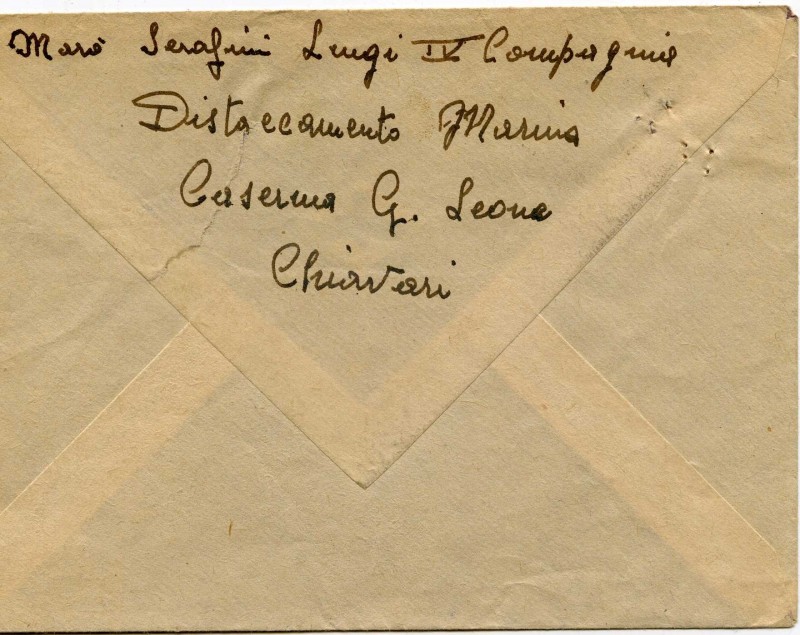 Marò Serafini Luigi IV Compagnia
Distaccamento Marina
Caserma G. Leone
Chiavari